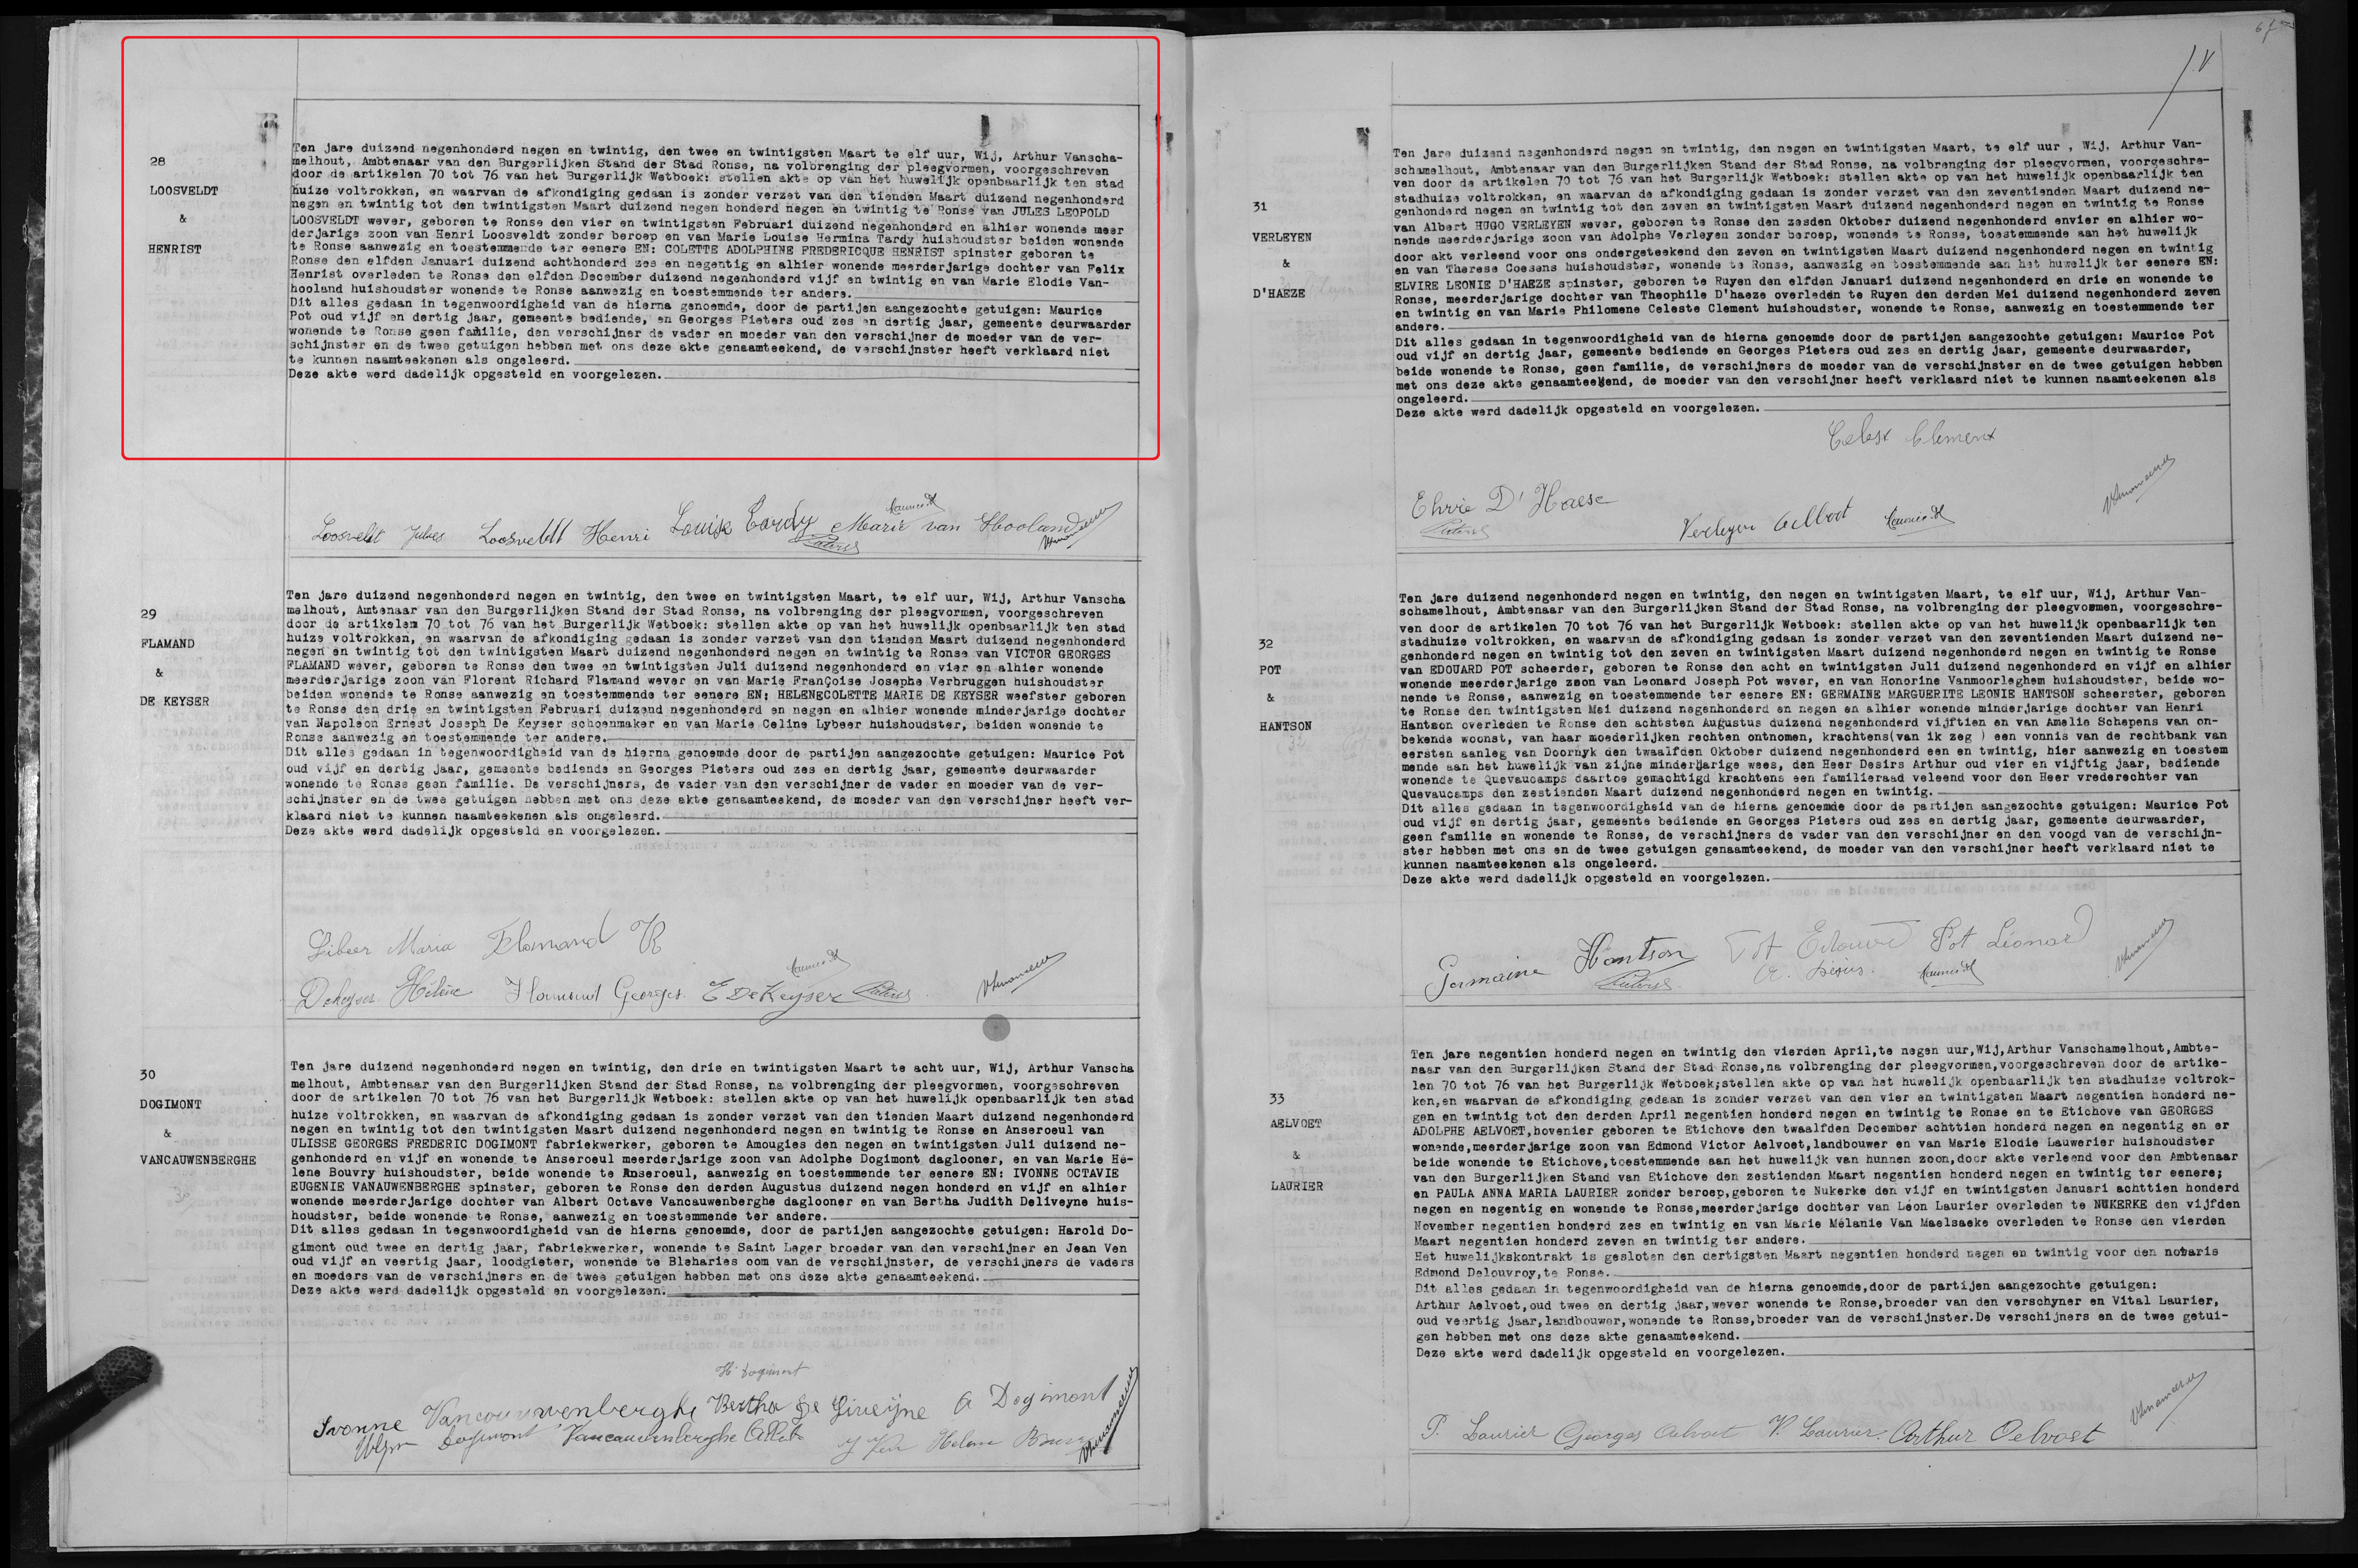 67
28
LOOSVELDT
&
HENRIST
Ten jare duizend negenhonderd negen en twintig, den twee en twintigsten Maart te elf uur, Wij, Arthur Vanscha-
melhout, Ambtenaar van den Burgerlijken Stand der Stad Ronse, na volbrenging der pleegvormen, voorgeschreven
door de artikelen 70 tot 76 van het Burgerlijk Wetboek: stellen akte op van het huwelijk openbaarlijk ten stad
huize voltrokken, en waarvan de afkondiging gedaan is zonder verzet van den tienden Maart duizend negenhonderd
negen en twintig tot den twintigsten Maart duizend negen honderd negen en twintig te Ronse van JULES LEOPOLD
LOOSVELDT wever, geboren te Ronse den vier en twintigsten Februari duizend negenhonderd en alhier wonende meer
derjarige zoon van Henri Loosveldt zonder beroep en van Marie Louise Hermina Tardy huishoudster beiden wonende
te Ronse aanwezig en toestemmende ter eenere EN: COLETTE ADOLPHINE FREDERICQUE HENRIST spinster geboren te
Ronse den elfden Januari duizend achthonderd zes en negentig en alhier wonende meerderjarige dochter van Felix
Henrist overleden te Ronse den elfden December duizend negenhonderd vijf en twintig en van Marie Elodie Van-
hooland huishoudster wonende te Ronse aanwezig en toestemmende ter andere.
Dit alles gedaan in tegenwoordigheid van de hierna genoemde, door de partijen aangezochte getuigen: Maurice
Pot oud vijf en dertig jaar, gemeente bediende, en Georges Pieters oud zes en dertig jaar, gemeente deurwaarder
wonende te Ronse geen familie, den verschijner de vader en moeder van den verschijner de moeder van de ver-
schijnster en de twee getuigen hebben met ons deze akte genaamteekend, de verschijnster heeft verklaard niet
te kunnen naamteekenen als ongeleerd.
Deze akte werd dadelijk opgesteld en voorgelezen.
Loosveldt Jules Loosveldt Henri Louise Tardy Marie van Hooland
Pieters
29
FLAMAND
&
DE KEYSER
Ten jare duizend negenhonderd negen en twintig, den twee en twintigsten Maart, te elf uur, Wij, Arthur Vanscha
melhout, Amtenaar van den Burgerlijken Stand der Stad Ronse, na volbrenging der pleegvormen, voorgeschreven
door de artikelem 70 tot 76 van het Burgerlijk Wetboek: stellen akte op van het huwelijk openbaarlijk ten stad
huize voltrokken, en waarvan de afkondiging gedaan is zonder verzet van den tienden Maart duizend negenhonderd
negen en twintig tot den twintigsten Maart duizend negenhonderd negen en twintig te Ronse van VICTOR GEORGES
FLAMAND wever, geboren te Ronse den twee en twintigsten Juli duizend negenhonderd en vier en alhier wonende
meerderjarige zoon van Florent Richard Flamand wever en van Marie Françoise Josephe Verbruggen huishoudster
beiden wonende te Ronse aanwezig en toestemmende ter eenere EN: HELENECOLETTE MARIE DE KEYSER weefster geboren
te Ronse den drie en twintigsten Februari duizend negenhonderd en negen en alhier wonende minderjarige dochter
van Napoleon Ernest Joseph De Keyser schoenmaker en van Marie Celine Lybeer huishoudster, beiden wonende te
Ronse aanwezig en toestemmende ter andere.
Dit alles gedaan in tegenwoordigheid van de hierna genoemde door de partijen aangezochte getuigen: Maurice Pot
oud vijf en dertig jaar, gemeente bediende en Georges Pieters oud zes en dertig jaar, gemeente deurwaarder
wonende te Ronse geen familie. De verschijners, de vader van den verschijner de vader en moeder van de ver-
schijnster en de twee getuigen hebben met ons deze akte genaamteekend, de moeder van den verschijner heeft ver-
klaard niet te kunnen naamteekenen als ongeleerd.
Deze akte werd dadelijk opgesteld en voorgelezen.
Libeer Maria Flamand R
Dekeyser Hélène Flamand Georges E De Keyser Pieters
30
DOGIMONT
&
VANCAUWENBERGHE
Ten jare duizend negenhonderd negen en twintig, den drie en twintigsten Maart te acht uur, Wij, Arthur Vanscha
melhout, Ambtenaar van den Burgerlijken Stand der Stad Ronse, na volbrenging der pleegvormen, voorgeschreven
door de artikelen 70 tot 76 van het Burgerlijk Wetboek: stellen akte op van het huwelijk openbaarlijk ten stad
huize voltrokken, en waarvan de afkondiging gedaan is zonder verzet van den tienden Maart duizend negenhonderd
negen en twintig tot den twintigsten Maart duizend negenhonderd negen en twintig te Ronse en Anseroeul van
ULISSE GEORGES FREDERIC DOGIMONT fabriekwerker, geboren te Amougies den negen en twintigsten Juli duizend ne-
genhonderd en vijf en wonende te Anseroeul meerderjarige zoon van Adolphe Dogimont daglooner, en van Marie Hé-
lene Bouvry huishoudster, beide wonende te Anseroeul, aanwezig en toestemmende ter eenere EN: IVONNE OCTAVIE
EUGENIE VANAUWENBERGHE spinster, geboren te Ronse den derden Augustus duizend negen honderd en vijf en alhier
wonende meerderjarige dochter van Albert Octave Vancauwenberghe daglooner en van Bertha Judith Deliveyne huis-
houdster, beide wonende te Ronse, aanwezig en toestemmende ter andere.
Dit alles gedaan in tegenwoordigheid van de hierna genoemde, door de partijen aangezochte getuigen: Harold Do-
gimont oud twee en dertig jaar, fabriekwerker, wonende te Saint Leger broeder van den verschijner en Jean Ven
oud vijf en veertig jaar, loodgieter, wonende te Bleharies oom van de verschijnster, de verschijners de vaders
en moeders van de verschijners en de twee getuigen hebben met ons deze akte genaamteekend.
Deze akte werd dadelijk opgesteld en voorgelezen.
H. Dogimont
Ivonne Vancauwenberghe Bertha De Liveyne A Dogimont
Dogimont Vancauwenberghe Helene
31
VERLEYEN
&
D'HAEZE
Ten jare duizend negenhonderd negen en twintig, den negen en twintigsten Maart, te elf uur , Wij, Arthur Van-
schamelhout, Ambtenaar van den Burgerlijken Stand der Stad Ronse, na volbrenging der pleegvormen, voorgeschre-
ven door de artikelen 70 tot 76 van het Burgerlijk Wetboek: stellen akte op van het huwelijk openbaarlijk ten
stadhuize voltrokken, en waarvan de afkondiging gedaan is zonder verzet van den zeventienden Maart duizend ne-
genhonderd negen en twintig tot den zeven en twintigsten Maart duizend negenhonderd negen en twintig te Ronse
van Albert HUGO VERLEYEN wever, geboren te Ronse den zesden Oktober duizend negenhonderd envier en alhier wo-
nende meerderjarige zoon van Adolphe Verleyen zonder beroep, wonende te Ronse, toestemmende aan het huwelijk
door akt verleend voor ons ondergeteekend den zeven en twintigsten Maart duizend negenhonderd negen en twintig
en van Therese Coesens huishoudster, wonende te Ronse, aanwezig en toestemmende aan het huwelijk ter eenere EN:
ELVIRE LEONIE D'HAEZE spinster, geboren te Ruyen den elfden Januari duizend negenhonderd en drie en wonende te
Ronse, meerderjarige dochter van Theophile D'haeze overleden te Ruyen den derden Mei duizend negenhonderd zeven
en twintig en van Marie Philomene Celeste Clement huishoudster, wonende te Ronse, aanwezig en toestemmende ter
andere.
Dit alles gedaan in tegenwoordigheid van de hierna genoemde door de partijen aangezochte getuigen: Maurice Pot
oud vijf en dertig jaar, gemeente bediende en Georges Pieters oud zes en dertig jaar, gemeente deurwaarder,
beide wonende te Ronse, geen familie, de verschijners de moeder van de verschijnster en de twee getuigen hebben
met ons deze akte genaamteekend, de moeder van den verschijner heeft verklaard niet te kunnen naamteekenen als
ongeleerd.
Deze akte werd dadelijk opgesteld en voorgelezen.
Celest Clement
Elvire D'Haese
Pieters Verleyen Albert
32
POT
&
HANTSON
Ten jare duizend negenhonderd negen en twintig, den negen en twintigsten Maart, te elf uur, Wij, Arthur Van-
schamelhout, Ambtenaar van den Burgerlijken Stand der Stad Ronse, na volbrenging der pleegvormen, voorgeschre-
ven door de artikelen 70 tot 76 van het Burgerlijk Wetboek: stellen akte op van het huwelijk openbaarlijk ten
stadhuize voltrokken, en waarvan de afkondiging gedaan is zonder verzet van den zeventienden Maart duizend ne-
genhonderd negen en twintig tot den zeven en twintigsten Maart duizend negenhonderd negen en twintig te Ronse
van EDOUARD POT scheerder, geboren te Ronse den acht en twintigsten Juli duizend negenhonderd en vijf en alhier
wonende meerderjarige zoon van Leonard Joseph Pot wever, en van Honorine Vanmoorleghem huishoudster, beide wo-
nende te Ronse, aanwezig en toestemmende ter eenere EN: GERMAINE MARGUERITE LEONIE HANTSON scheerster, geboren
te Ronse den twintigsten Mei duizend negenhonderd en negen en alhier wonende minderjarige dochter van Henri
Hantson overleden te Ronse den achtsten Augustus duizend negenhonderd vijftien en van Amelie Schepens van on-
bekende woonst, van haar moederlijken rechten ontnomen, krachtens(van ik zeg ) een vonnis van de rechtbank van
eersten aanleg van Doornyk den twaalfden Oktober duizend negenhonderd een en twintig, hier aanwezig en toestem
mende aan het huwelijk van zijne minderjarige wees, den Heer Desirs Arthur oud vier en vijftig jaar, bediende
wonende te Quevaucamps daartoe gemachtigd krachtens een familieraad veleend voor den Heer vrederechter van
Quevaucamps den zestienden Maart duizend negenhonderd negen en twintig.
Dit alles gedaan in tegenwoordigheid van de hierna genoemde door de partijen aangezochte getuigen: Maurice Pot
oud vijf en dertig jaar, gemeente bediende en Georges Pieters oud zes en dertig jaar, gemeente deurwaarder,
geen familie en wonende te Ronse, de verschijners de vader van den verschijner en den voogd van de verschijn-
ster hebben met ons en de twee getuigen genaamteekend, de moeder van den verschijner heeft verklaard niet te
kunnen naamteekenen als ongeleerd.
Deze akte werd dadelijk opgesteld en voorgelezen.
Germaine Hantson Pot Edouard Pot Léonard
Pieters
33
AELVOET
&
LAURIER
Ten jare negentien honderd negen en twintig den vierden April,te negen uur,Wij,Arthur Vanschamelhout,Ambte-
naar van den Burgerlijken Stand der Stad Ronse,na volbrenging der pleegvormen,voorgeschreven door de artike-
len 70 tot 76 van het Burgerlijk Wetboek;stellen akte op van het huwelijk openbaarlijk ten stadhuize voltrok-
ken,en waarvan de afkondiging gedaan is zonder verzet van den vier en twintigsten Maart negentien honderd ne-
gen en twintig tot den derden April negentien honderd negen en twintig te Ronse en te Etichove van GEORGES
ADOLPHE AELVOET,hovenier geboren te Etichove den twaalfden December achttien honderd negen en negentig en er
wonende,meerderjarige zoon van Edmond Victor Aelvoet,landbouwer en van Marie Elodie Lauwerier huishoudster
beide wonende te Etichove,toestemmende aan het huwelijk van hunnen zoon,door akte verleend voor den Ambtenaar
van den Burgerlijken Stand van Etichove den zestienden Maart negentien honderd negen en twintig ter eenere;
en PAULA ANNA MARIA LAURIER zonder beroep,geboren te Nukerke den vijf en twintigsten Januari achttien honderd
negen en negentig en wonende te Ronse,meerderjarige dochter van Léon Laurier overleden te NUKERKE den vijfden
November negentien honderd zes en twintig en van Marie Mélanie Van Maelsaeke overleden te Ronse den vierden
Maart negentien honderd zeven en twintig ter andere.
Het huwelijkskontrakt is gesloten den dertigsten Maart negentien honderd negen en twintig voor den notaris
Edmond Delouvroy,te Ronse.
Dit alles gedaan in tegenwoordigheid van de hierna genoemde,door de partijen aangezochte getuigen:
Arthur Aelvoet,oud twee en dertig jaar,wever wonende te Ronse,broeder van den verschyner en Vital Laurier,
oud veertig jaar,landbouwer,wonende te Ronse,broeder van de verschijnster.De verschijners en de twee getui-
gen hebben met ons deze akte genaamteekend.
Deze akte werd dadelijk opgesteld en voorgelezen.
P. Laurier Georges Aelvoet V. Laurier Arthur Aelvoet